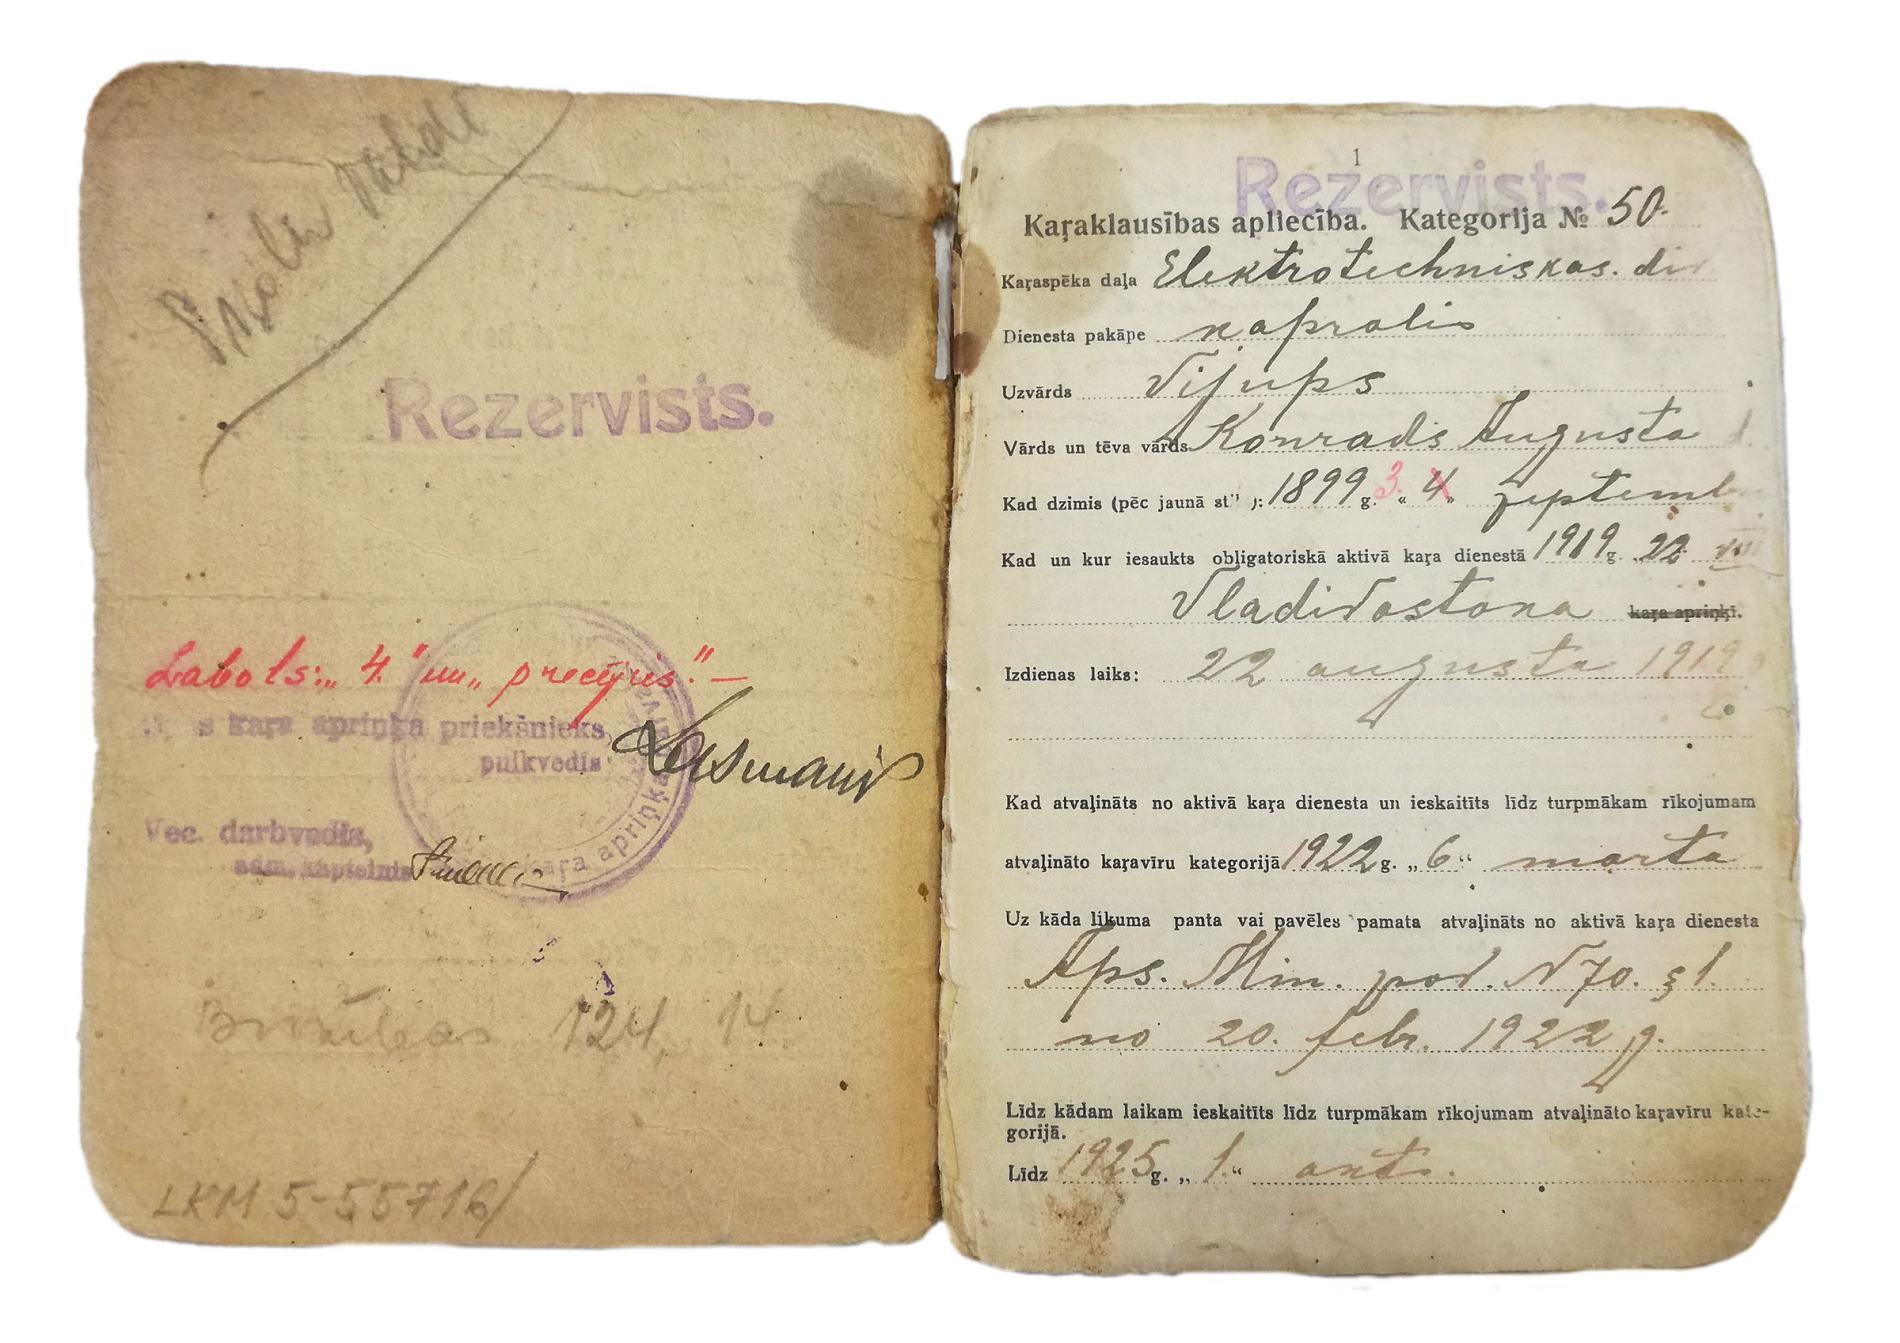 Rezervists.
Labots: „4." un „precējies." —
kara apriņķa priekšnieks,
pulkvedis
Vec. darbvedis,
adm. kapteinis
kara apriņķa
Brīvības 124, 14.
LKM 5-55716/
1
Rezervists.
Kaŗaklausības apliecība. Kategorija № 50.
Kaŗaspēka daļa Elektrotechniskas. div
Dienesta pakāpe kaprālis
Uzvārds Vijups
Vārds un tēva vārds Konrads Augusta d.
Kad dzimis (pēc jaunā st. ): 1899 g. 3. „4„ septemb
Kad un kur iesaukts obligatoriskā aktivā kaŗa dienestā 1919 g. 22 VIII
Vladivostokā kaŗa apriņķī.
Izdienas laiks: 22 augusta 1919
Kad atvaļināts no aktivā kaŗa dienesta un ieskaitīts līdz turpmākam rīkojumam
atvaļināto kaŗavīru kategorijā 1922 g. „6" marta
Uz kāda likuma panta vai pavēles pamata atvaļināts no aktivā kaŗa dienesta
Aps. Min. pav. N 70. § 1.
no 20. febr. 1922 g.
Līdz kādam laikam ieskaitīts līdz turpmākam rīkojumam atvaļināto kaŗavīru kate-
gorijā.
Līdz 1925 g. „1." okt.